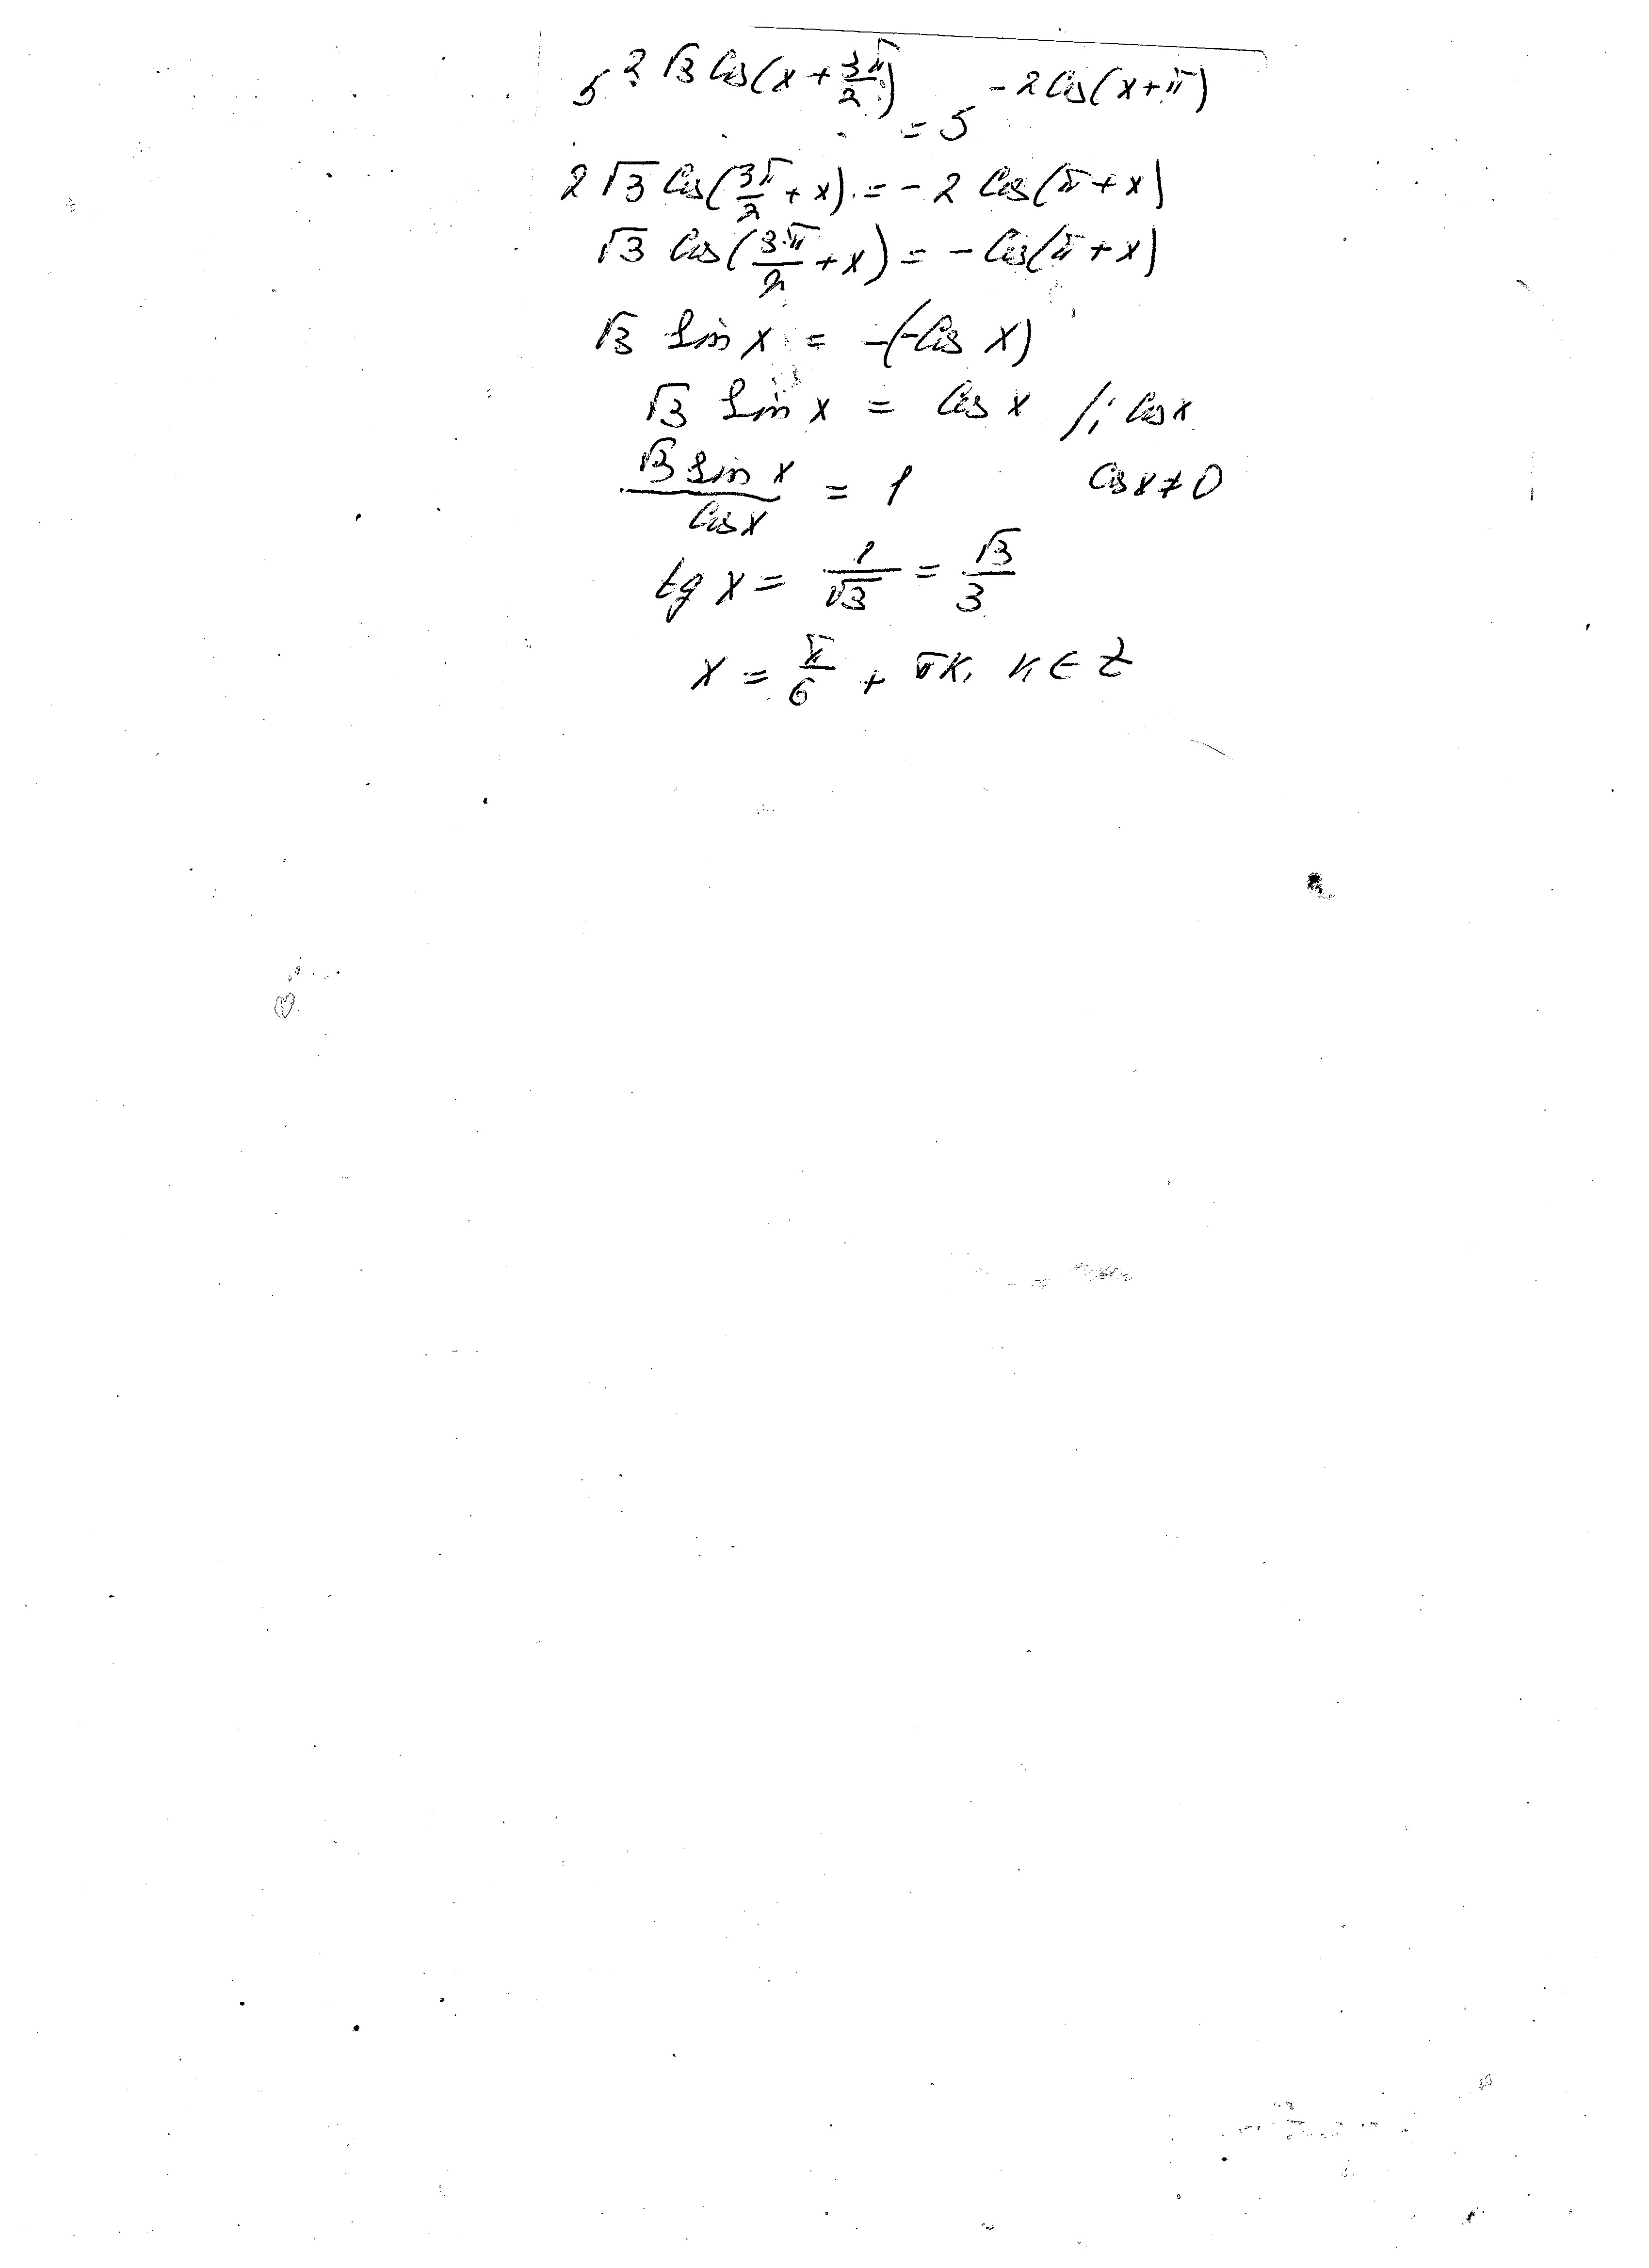 5^{2√3 cos(x + 3π/2)} = 5^{-2cos(x+π)}
2√3 cos(3π/2 + x) = -2 cos(π + x)
√3 cos(3π/2 + x) = -cos(π + x)
√3 sin x = -(-cos x)
√3 sin x = cos x /: cos x
√3 sin x / cos x = 1 cos x ≠ 0
tg x = 1/√3 = √3/3
x = π/6 + πk, k ∈ Z